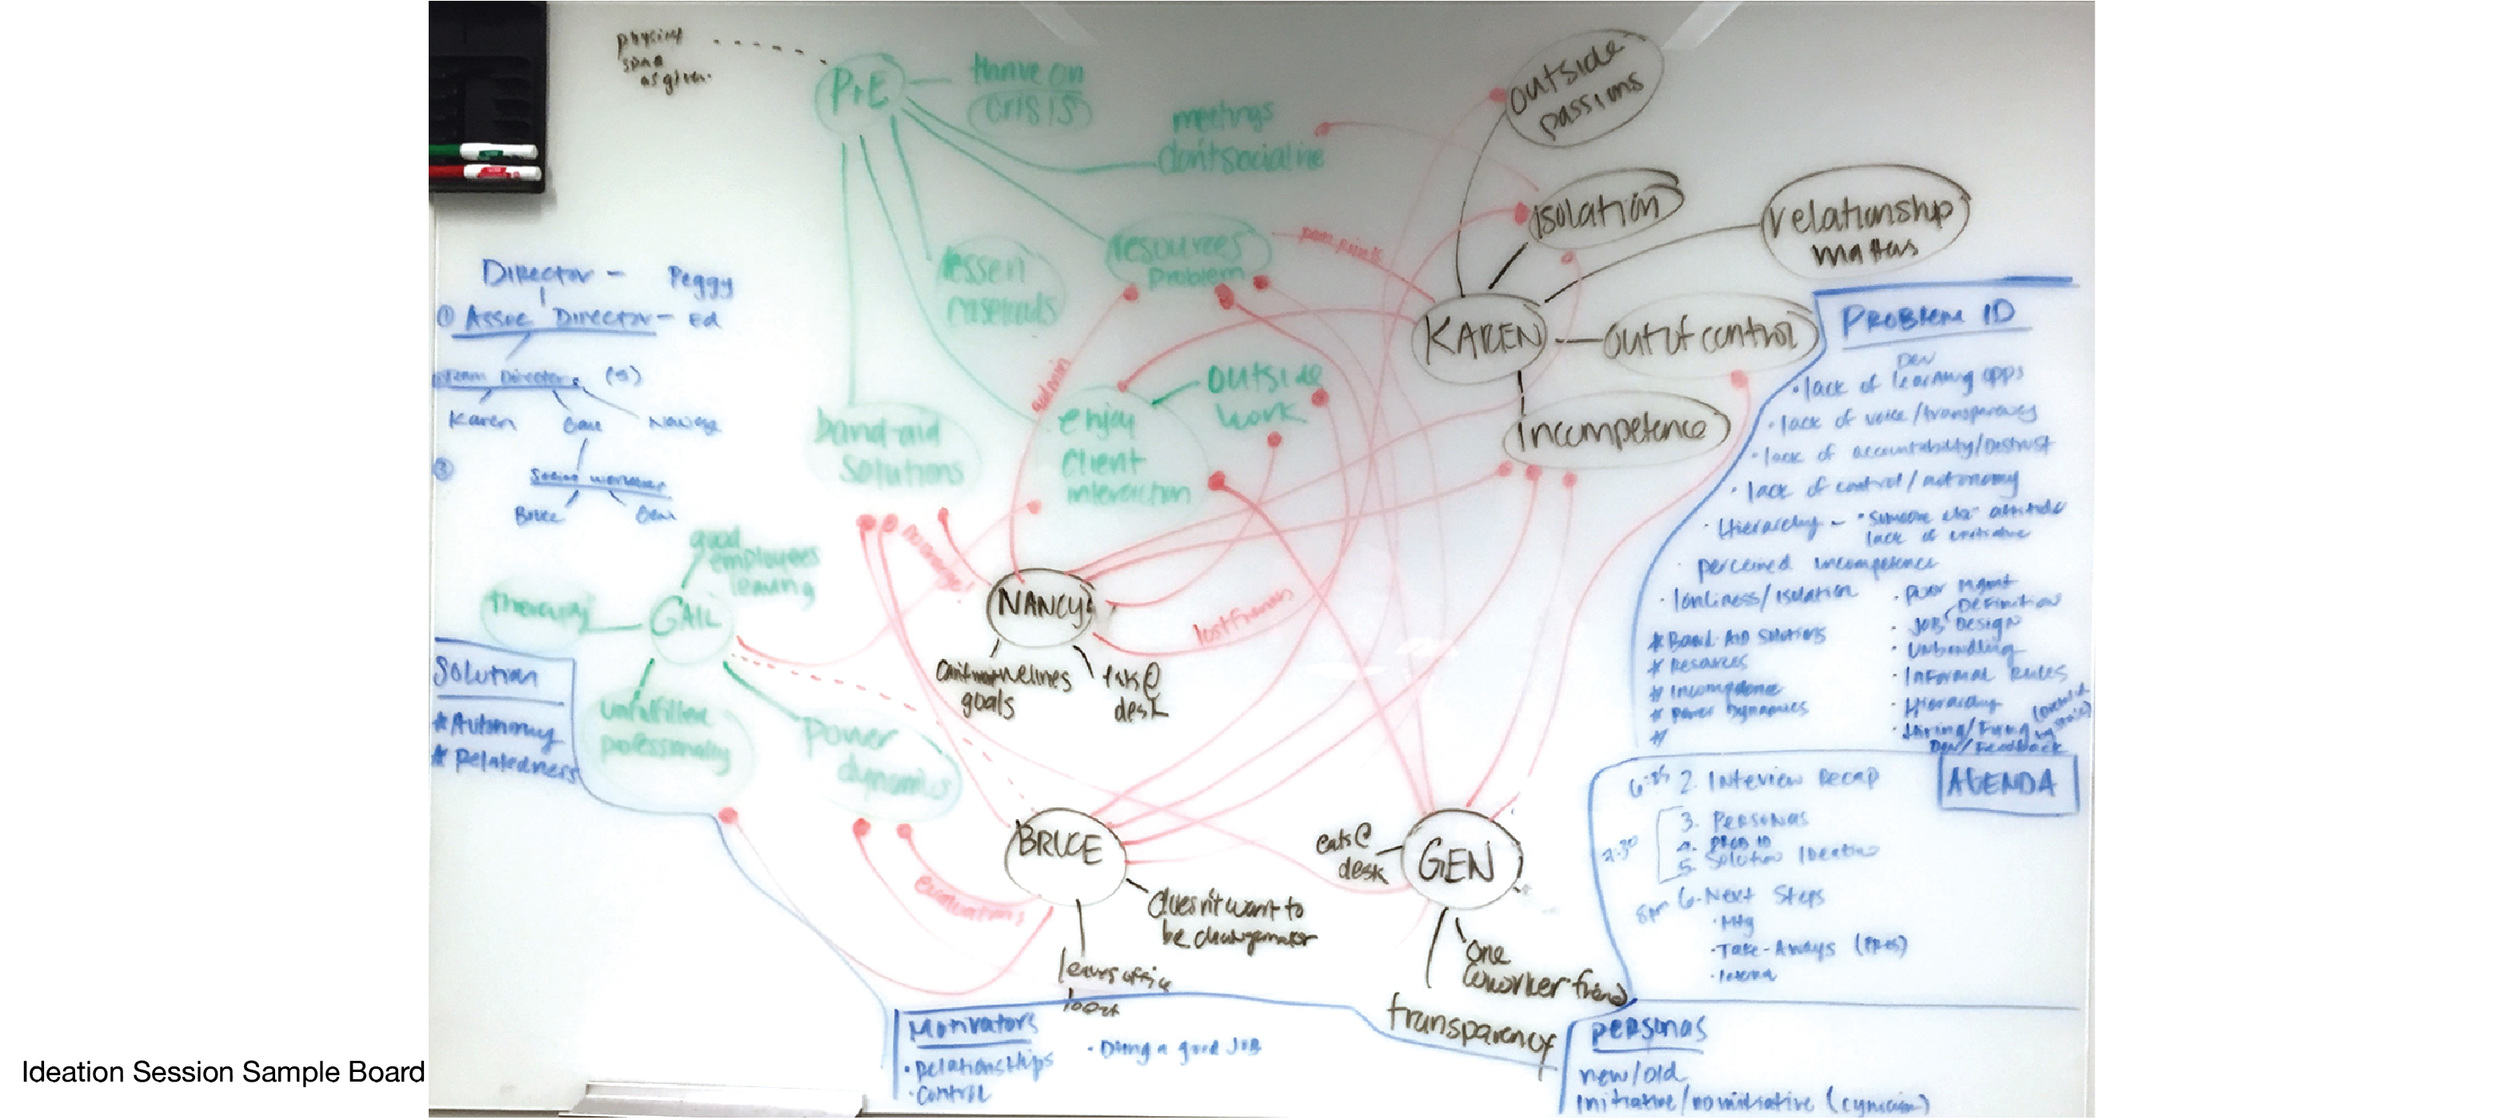 physical
as given
P+E
thrive on
crisis
meetings
don't socialize
resources
problem
lessen
caseloads
band-aid
solutions
enjoy
client
interaction
outside
work
admin
pain points
outside
passions
isolation
relationship
matters
KAREN
out of control
incompetence
Director - Peggy
① Assoc Director - Ed
Team Director (5)
Karen
②
Social workers
Bruce Gen
good
employees
leaving
therapy
GAIL
unfulfilled
professionally
power
dynamics
Solution
# Autonomy
# Relatedness
NANCY
goals
eats @
desk
BRUCE
evaluations
doesn't want to
be changemaker
leaves office
GEN
eats @
desk
one
coworker friend
transparency
PROBLEM ID
Dev
• lack of learning opps
• lack of voice/transparency
• lack of accountability/Distrust
• lack of control/autonomy
• Hierarchy - "someone else" attitude
lack of initiative
• perceived incompetence
• lonliness/isolation
# Band-AID Solutions
# Resources
# Incompetence
# Power Dynamics
#
• Poor Mgmt
Definition
• JOB Design
• Unbundling
• Informal Rules
• Hierarchy
• Hiring/Firing
Dev/Feedback
AGENDA
2. Interview Recap
3. Personas
4. PROB ID
5. Solution Ideation
2:30
6. Next Steps
8pm
• Mtg
• Take-Aways (PRES)
Motivators
• Relationships
• Control
• Doing a good JOB
personas
new/old
initiative/no initiative (cynicism)
Ideation Session Sample Board